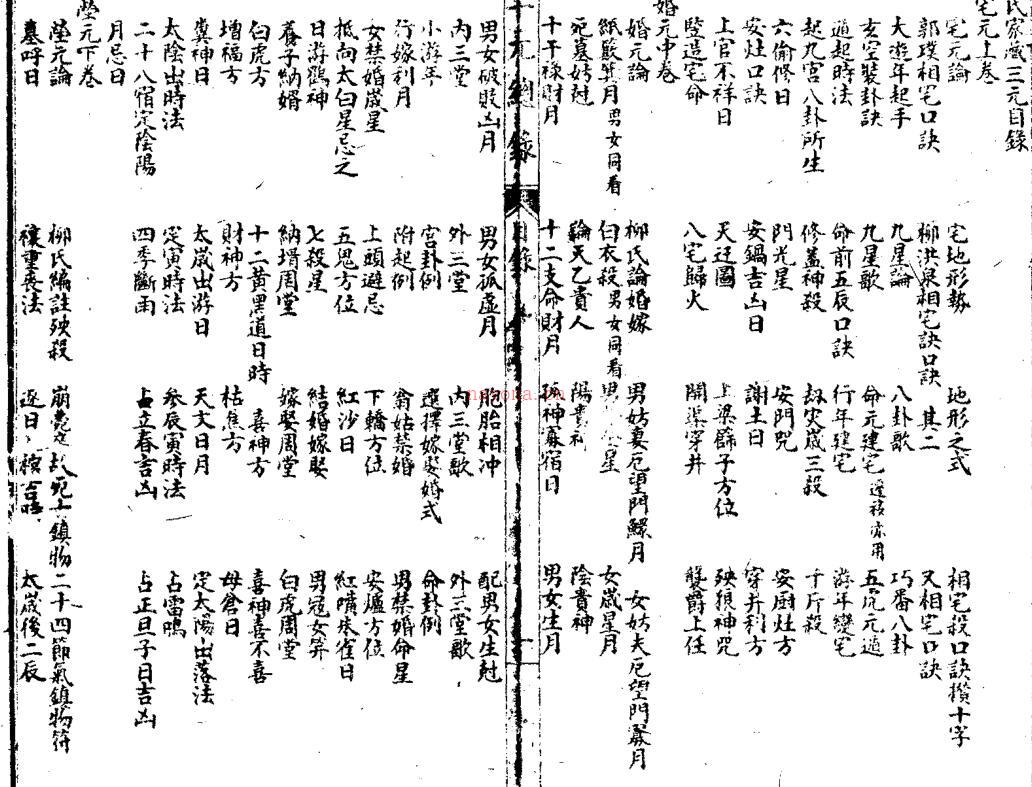 氏家藏三元目錄
宅元上卷
宅元論 宅地形勢 地形之式 相宅殺口訣攢十字
郭璞相宅口訣 柳洪泉相宅訣口訣 其二 又相宅口訣
大遊年起手 九星論 八卦歌 巧番八卦
玄空裝卦訣 九星歌 命元建宅遷移亦用 五虎元遁
遁起時法 命前五辰口訣 行年建宅 游年變宅
起九宮八卦所生 修蓋神殺 劫灾歲三殺 千斤殺
六偷修日 門光星 安門咒 安厨灶方
安灶口訣 安鍋吉凶日 謝土日 穿井利方
上官不祥日 天迁圖 上梁餙子方位 殃狽神咒
豎造宅命 八宅歸火 開渠穿井 襲爵上任
婚元中卷
婚元論 柳氏論婚嫁 男妨妻厄望門鰥月 女妨夫厄望門寡月
紙嚴筭月男女同看 白衣殺男女同看 星 女歲星月
死墓妨尅 論天乙貴人 陽貴神 陰貴神
十干祿財月 十二支命財月 孤神寡宿日 男女生月
十元總錄 目錄
男女破敗凶月 男女孤虛月 胞胎相冲 配男女生尅
內三堂 外三堂 內三堂歌 外三堂歌
小游年 宮卦例 選擇嫁娶婚式 命卦例
行嫁利月 附起例 翁姑禁婚 男禁婚命星
女禁婚歲星 上頭避忌 下轎方位 安爐方位
抵向太白星忌之 五鬼方位 紅沙日 紅嘴朱雀日
日游鶴神 七殺星 結婚嫁娶 男冠女笄
養子納婿 納壻周堂 嫁娶周堂 白虎周堂
白虎方 十二黃黑道日時 喜神方 喜神喜不喜
增福方 財神方 枯焦方 母倉日
糞神日 太歲出游日 天文日月 定太陽出落法
太陰出時法 定寅時法 參辰寅時法 占雷鳴
二十八宿定陰陽 四季斷雨 占立春吉凶 占正旦子日吉凶
月忌日
塋元下卷
塋元論 柳氏編註殃殺 崩薨 死 鎮物 二十四節氣鎮物符
墓呼日 禳重喪法 逐日 太歲後二辰